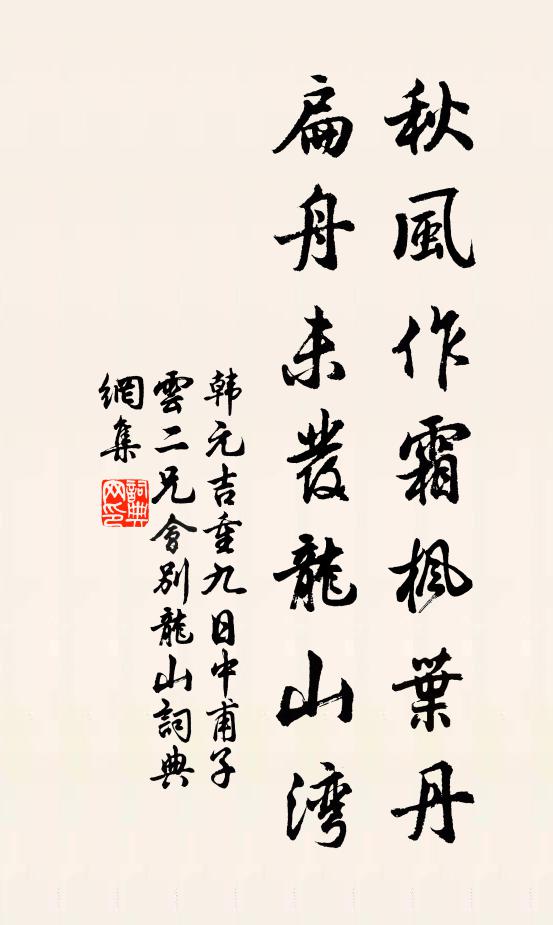 秋風作霜楓葉丹
扁舟未發龍山湾
韩元吉重九日中甫子
雲二兄會別龍山詞典
網集
詞典
网印